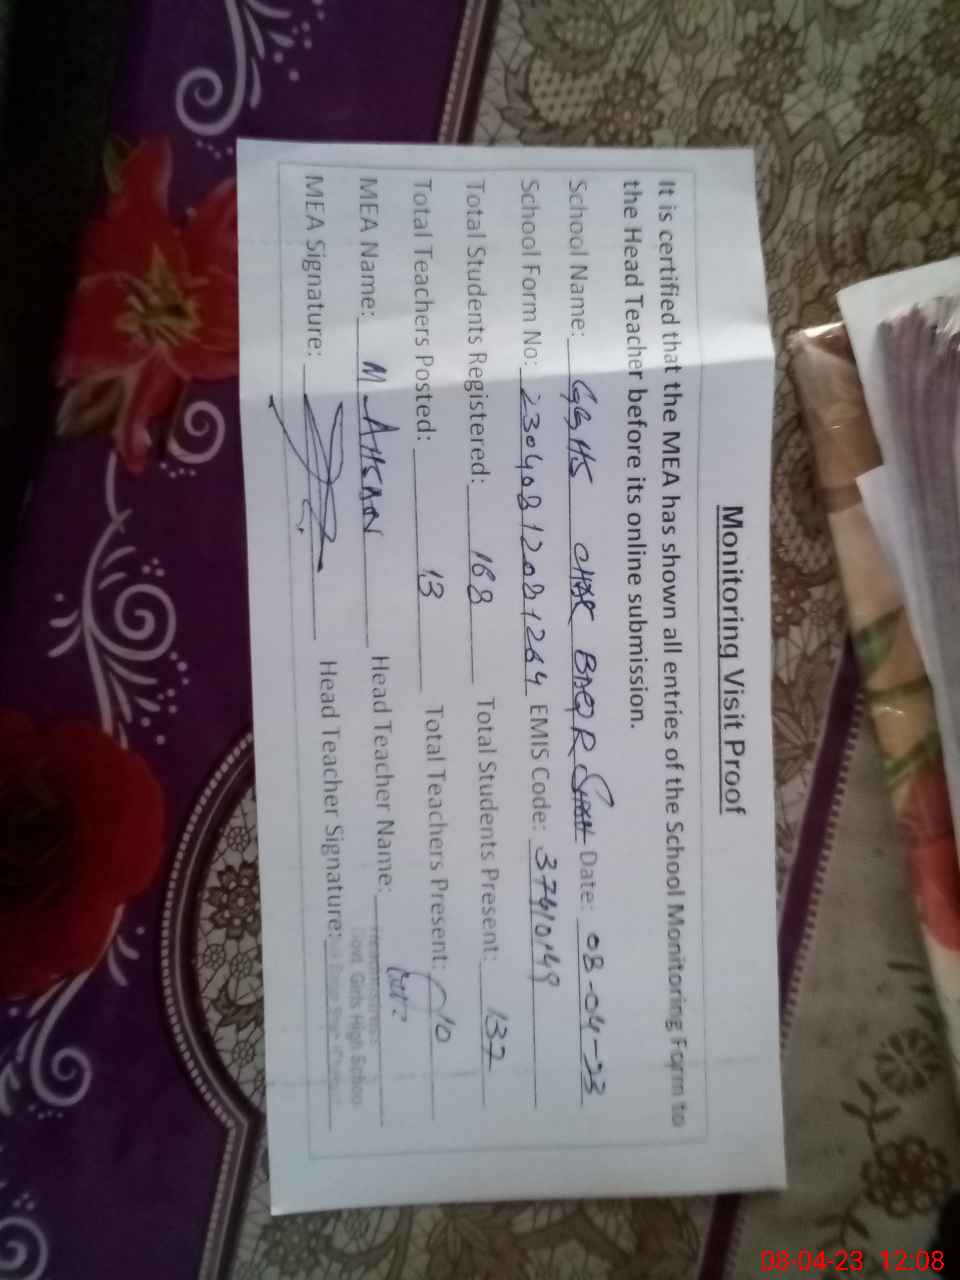 Monitoring Visit Proof
It is certified that the MEA has shown all entries of the School Monitoring Form to
the Head Teacher before its online submission.
School Name: GGHS CHAK BAQR SHAH Date: 08-04-23
School Form No: EMIS Code: 37410149
Total Students Registered: 168 Total Students Present: 137
Total Teachers Posted: 13 Total Teachers Present: 10
MEA Name: M AHSAN Head Teacher Name:
Headmistress
Govt. Girls High School
MEA Signature: Head Teacher Signature:
08-04-23 12:08